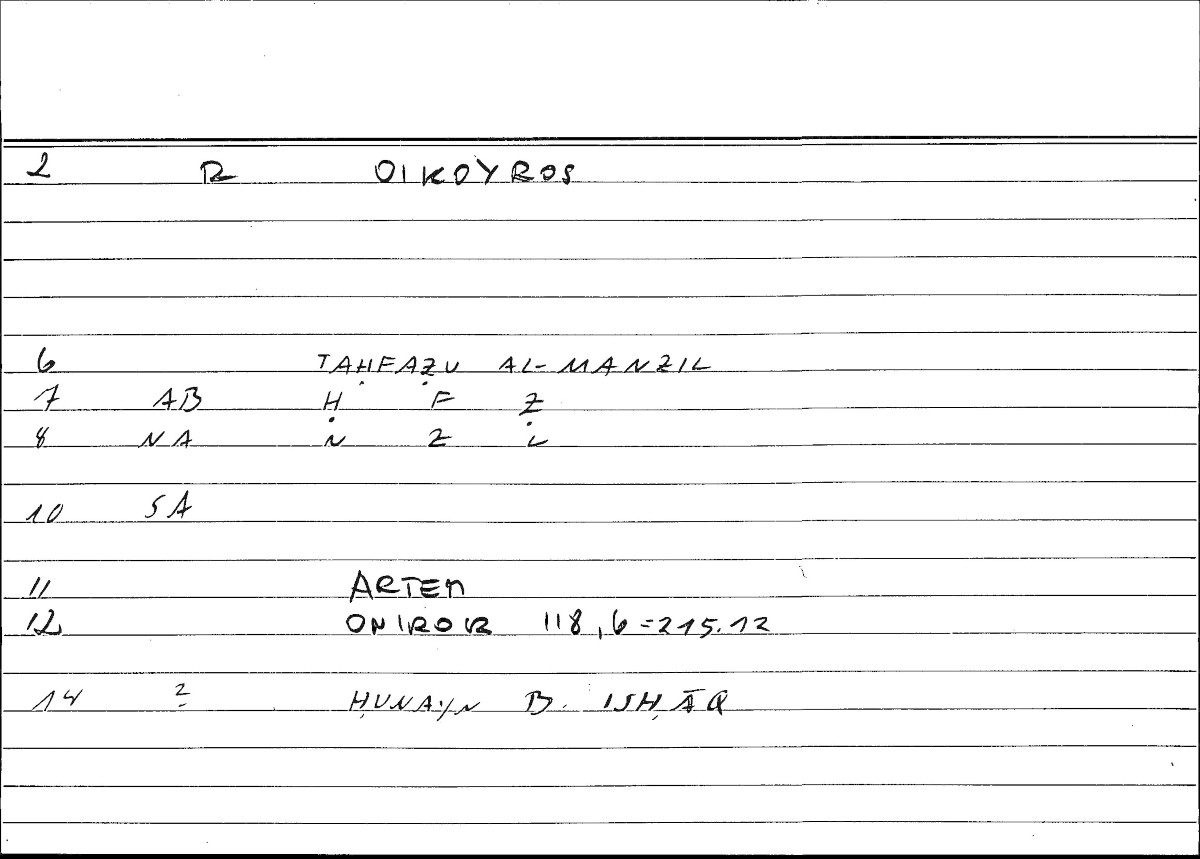 2 R OIKOYROS
6 TAḤFAẒU AL-MANZIL
7 AB Ḥ F Ẓ
8 NA N Z L
10 SA
11 ARTEM
12 ONIROKR 118,6=215.12
14 2 ḤUNAYN B. ISḤĀQ